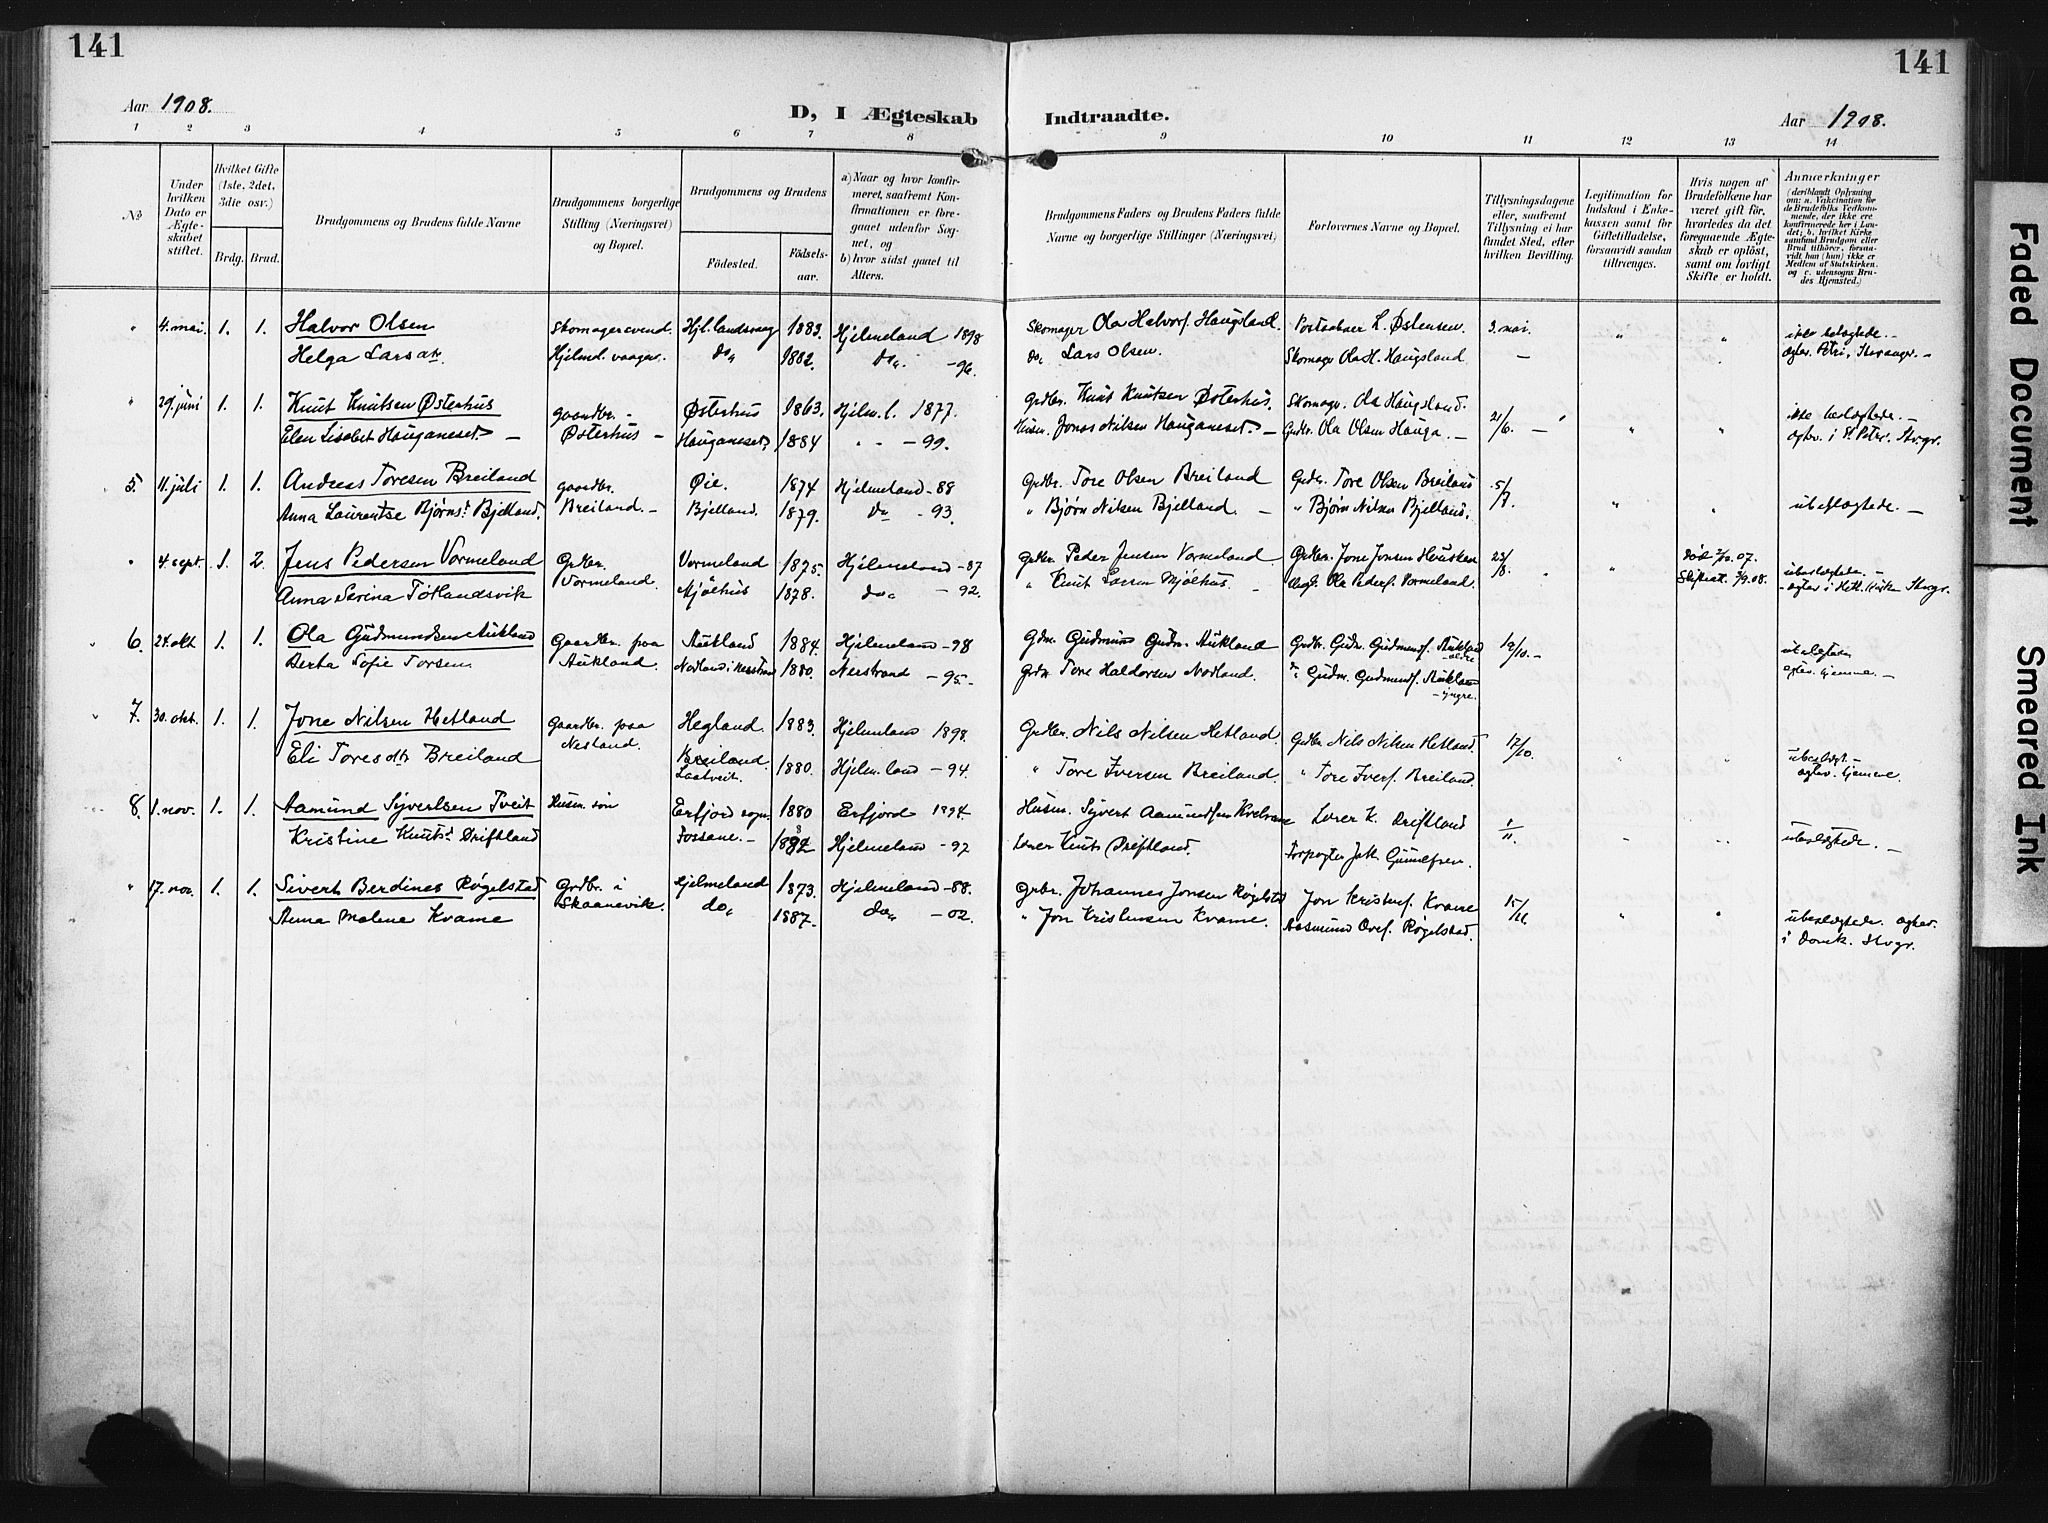 141
141
Aar 1908.
D, I Ægteskab Indtraadte.
Aar 1908.
1 2 3 4 5 6 7 8 9 10 11 12 13 14
No
Under hvilken Dato er Ægteskabet stiftet.
Hvilket Gifte (1ste, 2det, 3die osv.)
Brdg. Brud.
Brudgommens og Brudens fulde Navne
Brudgommens borgerlige Stilling (Næringsvei) og Bopæl.
Brudgommens og Brudens
Fødested.
Fødselsaar.
a) Naar og hvor konfirmeret, saafremt Konfirmationen er foregaaet udenfor Sognet, og
b) hvor sidst gaaet til Alters.
Brudgommens Faders og Brudens Faders fulde Navne og borgerlige Stillinger (Næringsvei)
Forlovernes Navne og Bopæl.
Tillysningsdagene eller, saafremt Tillysning ei har fundet Sted, efter hvilken Bevilling.
Legitimation for Indskud i Enkekassen samt for Giftetilladelse, forsaavidt saadan tiltrænges.
Hvis nogen af Brudefolkene har været gift før, hvorledes da det foregaaende Ægteskab er opløst, samt om lovligt Skifte er holdt.
Anmærkninger
(deriblandt Oplysning om: a. Vakcination for de Brudefolks Vedkommende, der ikke ere konfirmerede her i Landet; b. hvilket Kirkesamfund Brudgom eller Brud tilhører, forsaavidt han (hun) ikke er Medlem af Statskirken, og c. udensogns Brudes Hjemsted.)
" 4. mai. 1. 1. Halvor Olsen Skomagersvend. 1883. Hjelmeland 1898 Skomager Ola Halvors. Haugsland. L. Østensen. 3. mai. "
Helga Larsdtr. Hjelmel. vaagen. do. 1882. do. - 96. do. Lars Olsen. Skomager Ola H. Haugsland
" 29. juni 1. 1. Knut Knutsen Østerhus gaardbr. - Østerhus 1863. Hjelm.l. 1877. grdbr. Knut Knutsen Østerhus. Skomagr. Ola Haugsland. 21/6.
Elen Lisabet Hauganeset. Østerhus - Hauganeset 1884 " - 99. Husm. Jonas Nilsen Hauganeset. Grdbr. Ola Olsen Hauga.
5. 11. juli 1. 1. Andreas Toresen Breiland gaardbr. Øie. 1874 Hjelmeland - 88 Grdbr. Tore Olsen Breiland Grdbr. Tore Olsen Breiland 5/7.
Anna Laurentse Bjørns. Bjelland. Breiland. - Bjelland. 1879. do - 93. " Bjørn Nilsen Bjelland. - " Bjørn Nilsen Bjelland. ubeslægtede. -
" 4. sept. 1. 2. Jens Pedersen Vormeland Grdbr. Vormeland 1875. Hjelmeland - 87 grdbr. Peder Jensen Vormeland Grdbr. Jone Jonsen 23/8. død 07.
Anna Serina Tøtlandsvik Vormeland. Mjølhus 1878. do. - 92. " Knut Larsen Mjølhus. Ola Peders. Vormeland. 08. ubeslægtede. -
6. 24. okt 1. 1. Ola Gudmundsen Aukland Gaardbr. paa Aukland 1884. Hjelmeland - 98 Gdm. Gudmund Gudm. Aukland Grdbr. Gudm. Gudmunds. Aukland - ældre 12/10. -
Berta Sofie Torsen. Aukland. Nodland i Nerstrand 1880. Nerstrand - 95. - Tore Haldorsen Nodland. Gudm. Gudmunds. Aukland - yngre.
7. 30. okt. 1. 1. Jone Nilsen Hetland Gaardbr. paa Hegland. 1883. Hjelmeland 1898. Grdbr. Nils Nilsen Hetland. Grdbr. Nils Nilsen Hetland. 17/10.
Eli Toresdtr Breiland Breiland. 1880. Hjelm.land - 94. " Tore Iversen Breiland. " Tore Ivers. Breiland.
8. 1. nov. 1. 1. Aamund Syvertsen Tveit Husm. søn Erfjord sogn. 1880 Erfjord 1894. Husm. Syvert Aamundsen K. Driftland 1/11.
Kristine Knuts. Driftland Fossane. - 1882 Hjelmeland - 97 Knut Driftland. ubeslægtede. -
" 17. nov. 1. 1. Sivert Berdines Røgelstad Grdbr. i Hjelmeland 1873. Hjelmeland - 88. Grbr. Johannes Jonsen Røgelstad Jon Kristens. Kvame 15/11.
Anna Malene Kvame Skaanevik. do. 1887. do. - 02. " Jon Kristensen Kvame. Aasmund Røgelstad. ubeslægtede.
Faded Document
Smeared Ink